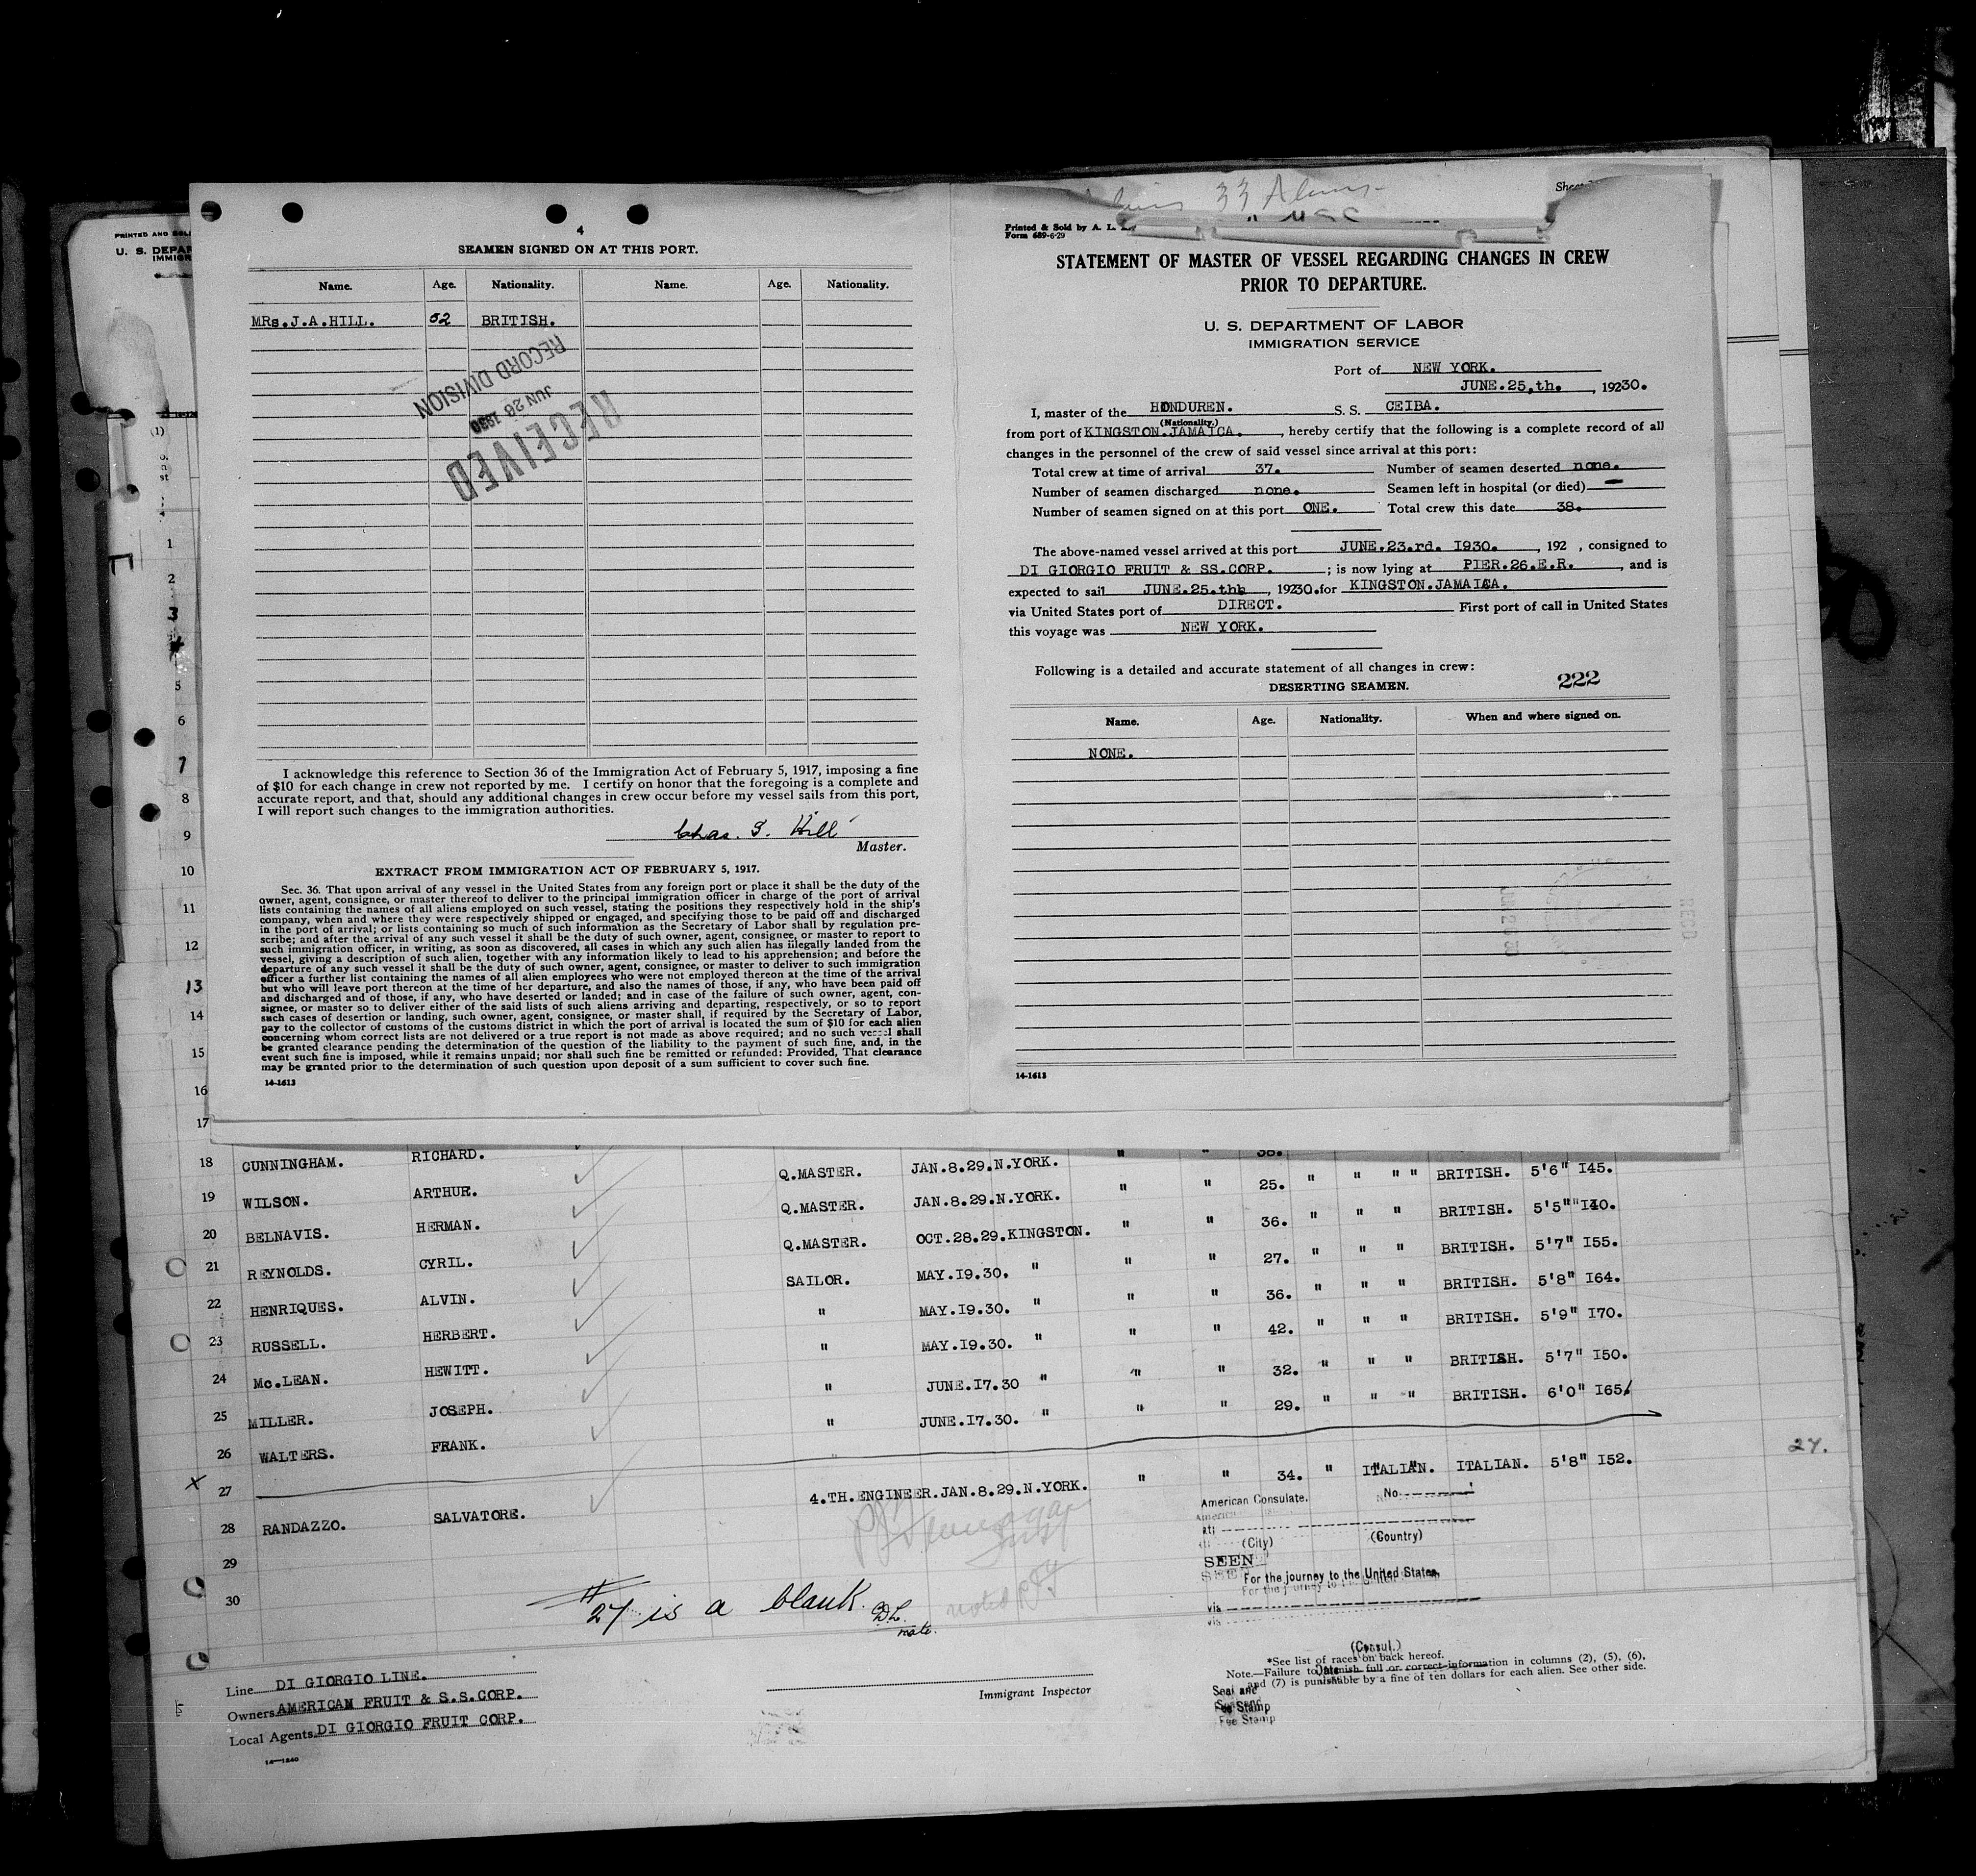 PRINTED AND SOL
U. S. DEPAR
IMMIGR
(1)
1
2
3
4
5
6
7
8
9
10
11
12
13
14
15
16
17
4
SEAMEN SIGNED ON AT THIS PORT.
Name. Age. Nationality. Name. Age. Nationality.
MRs.J.A.HILL. 52 BRITISH.
RECORD DIVISION
JUN 26 1930
RECEIVED
I acknowledge this reference to Section 36 of the Immigration Act of February 5, 1917, imposing a fine
of $10 for each change in crew not reported by me. I certify on honor that the foregoing is a complete and
accurate report, and that, should any additional changes in crew occur before my vessel sails from this port,
I will report such changes to the immigration authorities.
Chas. S. Hill
Master.
EXTRACT FROM IMMIGRATION ACT OF FEBRUARY 5, 1917.
Sec. 36. That upon arrival of any vessel in the United States from any foreign port or place it shall be the duty of the
owner, agent, consignee, or master thereof to deliver to the principal immigration officer in charge of the port of arrival
lists containing the names of all aliens employed on such vessel, stating the positions they respectively hold in the ship's
company, when and where they were respectively shipped or engaged, and specifying those to be paid off and discharged
in the port of arrival; or lists containing so much of such information as the Secretary of Labor shall by regulation pre-
scribe; and after the arrival of any such vessel it shall be the duty of such owner, agent, consignee, or master to report to
such immigration officer, in writing, as soon as discovered, all cases in which any such alien has illegally landed from the
vessel, giving a description of such alien, together with any information likely to lead to his apprehension; and before the
departure of any such vessel it shall be the duty of such owner, agent, consignee, or master to deliver to such immigration
officer a further list containing the names of all alien employees who were not employed thereon at the time of the arrival
but who will leave port thereon at the time of her departure, and also the names of those, if any, who have been paid off
and discharged and of those, if any, who have deserted or landed; and in case of the failure of such owner, agent, con-
signee, or master so to deliver either of the said lists of such aliens arriving and departing, respectively, or so to report
such cases of desertion or landing, such owner, agent, consignee, or master shall, if required by the Secretary of Labor,
pay to the collector of customs of the customs district in which the port of arrival is located the sum of $10 for each alien
concerning whom correct lists are not delivered or a true report is not made as above required; and no such vessel shall
be granted clearance pending the determination of the question of the liability to the payment of such fine, and, in the
event such fine is imposed, while it remains unpaid; nor shall such fine be remitted or refunded: Provided, That clearance
may be granted prior to the determination of such question upon deposit of a sum sufficient to cover such fine.
14-1613
33 Aliens
Sheet
Printed & Sold by A. L.
Form 689-6-29
STATEMENT OF MASTER OF VESSEL REGARDING CHANGES IN CREW
PRIOR TO DEPARTURE.
U. S. DEPARTMENT OF LABOR
IMMIGRATION SERVICE
Port of NEW YORK.
JUNE.25,th. , 19230.
I, master of the HONDUREN. S. S. CEIBA.
(Nationality.)
from port of KINGSTON.JAMAICA. , hereby certify that the following is a complete record of all
changes in the personnel of the crew of said vessel since arrival at this port:
Total crew at time of arrival 37. Number of seamen deserted none.
Number of seamen discharged none. Seamen left in hospital (or died) —
Number of seamen signed on at this port ONE. Total crew this date 38.
The above-named vessel arrived at this port JUNE.23.rd. I930. , 192 , consigned to
DI GIORGIO FRUIT & SS.CORP. ; is now lying at PIER.26.E.R. , and is
expected to sail JUNE.25.thh , 19230.for KINGSTON.JAMAICA.
via United States port of DIRECT. First port of call in United States
this voyage was NEW YORK.
Following is a detailed and accurate statement of all changes in crew:
DESERTING SEAMEN. 222
Name. Age. Nationality. When and where signed on.
NONE.
14-1613
18 CUNNINGHAM. RICHARD. Q.MASTER. JAN.8.29.N.YORK. " " 38. " " " " BRITISH. 5'6" I45.
19 WILSON. ARTHUR. Q.MASTER. JAN.8.29.N.YORK. " " 25. " " " BRITISH. 5'5" I40.
20 BELNAVIS. HERMAN. Q.MASTER. OCT.28.29.KINGSTON. " " 36. " " " BRITISH. 5'7" I55.
21 REYNOLDS. CYRIL. SAILOR. MAY.I9.30. " " " 27. " " " BRITISH. 5'8" I64.
22 HENRIQUES. ALVIN. " MAY.I9.30. " " " 36. " " " BRITISH. 5'9" I70.
23 RUSSELL. HERBERT. " MAY.I9.30. " " " 42. " " " BRITISH. 5'7" I50.
24 Mc.LEAN. HEWITT. " JUNE.I7.30 " " " 32. " " " BRITISH. 6'0" I65.
25 MILLER. JOSEPH. " JUNE.I7.30. " " " 29.
26 WALTERS. FRANK.
X 27 27.
28 RANDAZZO. SALVATORE. 4.TH.ENGINEER.JAN.8.29.N.YORK. " " 34. " ITALIAN. ITALIAN. 5'8" I52.
29
30
# 27 is a blank. DL
mate.
noted
American Consulate. No.
at
(City) (Country)
SEEN
For the journey to the United States.
via
(Consul.)
Date
Seal and
Fee Stamp
Line DI GIORGIO LINE.
Owners AMERICAN FRUIT & S.S.CORP.
Local Agents DI GIORGIO FRUIT CORP.
14—1240
Immigrant Inspector
*See list of races on back hereof.
Note.—Failure to furnish full or correct information in columns (2), (5), (6),
and (7) is punishable by a fine of ten dollars for each alien. See other side.